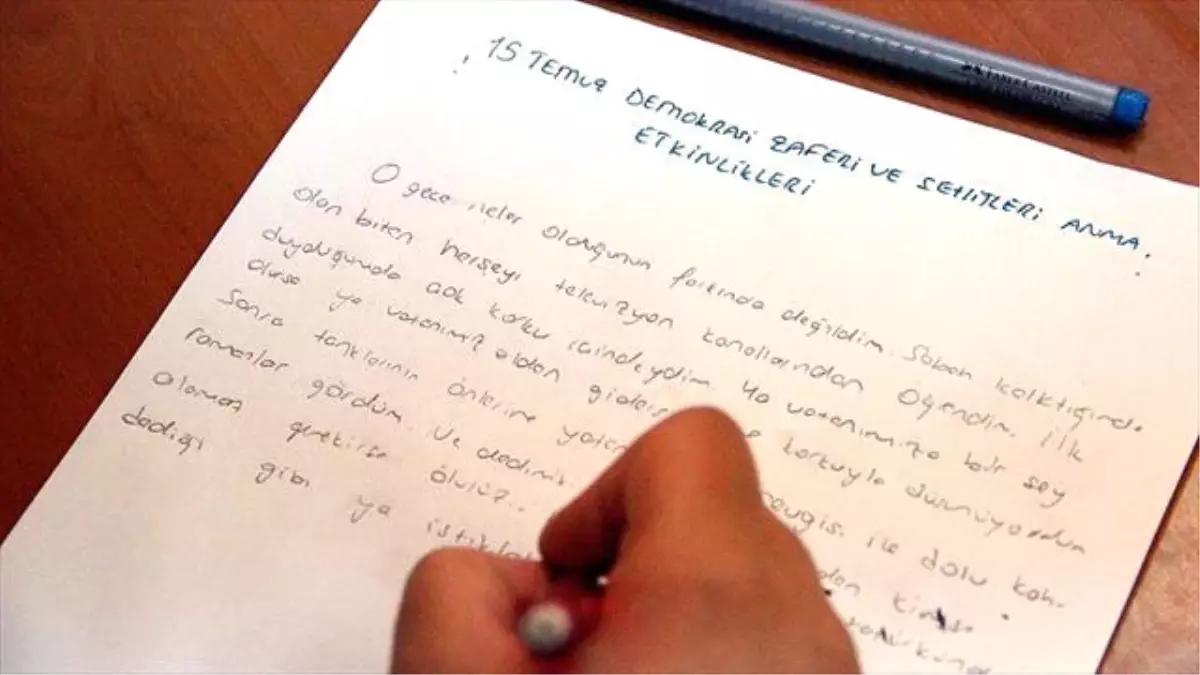 15 TEMUZ DEMOKRASİ ZAFERİ VE ŞEHİTLERİ ANMA
ETKİNLİKLERİ
O gece neler olduğunun farkında değildim. Sabah kalktığımda
olan biten herşeyi televizyon kanallarından öğendim. İlk
duyduğumda çok korku içindeydim. Ya vatanımıza bir şey
olursa ya vatanımız elden korkuyla düşünüyordum
Sonra tanklarının önlerine ile dolu kah-
ramanlar gördüm. Ve
alamaz gerekirse ölürüz..
dediği gibi ya